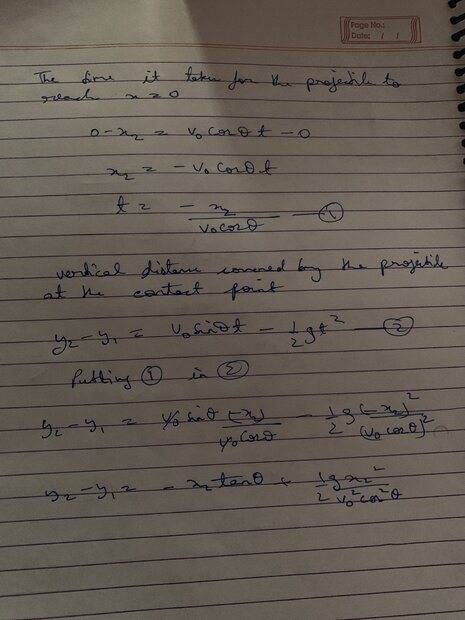 Page No.:
Date: / /
The time it takes for the projectile to
reach x = 0
0 - x₂ = v₀ cosθ t - 0
x₂ = - v₀ cosθ t
t = - x₂ / v₀ cosθ — ①
vertical distance covered by the projectile
at the contact point
y₂ - y₁ = v₀ sinθ t - 1/2 g t² — ②
Putting ① in ②
y₂ - y₁ = v₀ sinθ (-x₂) / v₀ cosθ - 1/2 g (-x₂)² / (v₀ cosθ)²
y₂ - y₁ = - x₂ tanθ + 1/2 g x₂² / v₀² cos²θ